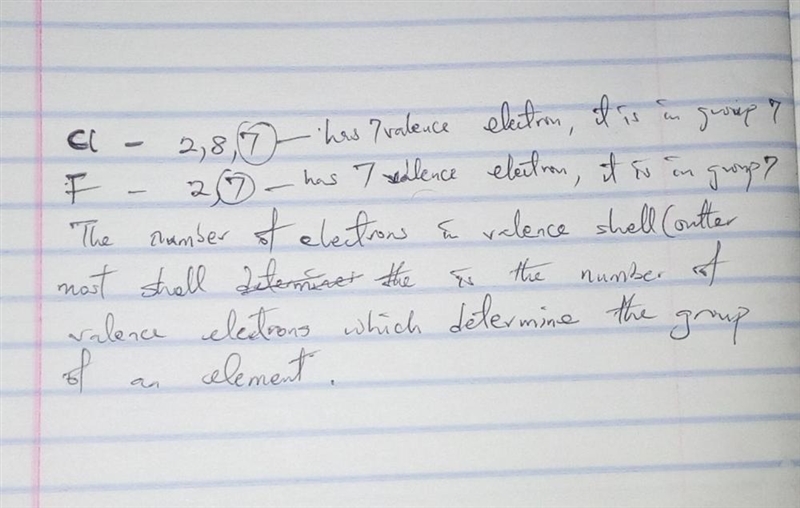 Cl - 2,8,7 - has 7 valence electron, it is in group 7
F - 2,7 - has 7 valence electron, it is in group 7
The number of electrons in valence shell (outter
most shell determines the is the number of
valence electrons which determine the group
of an element.